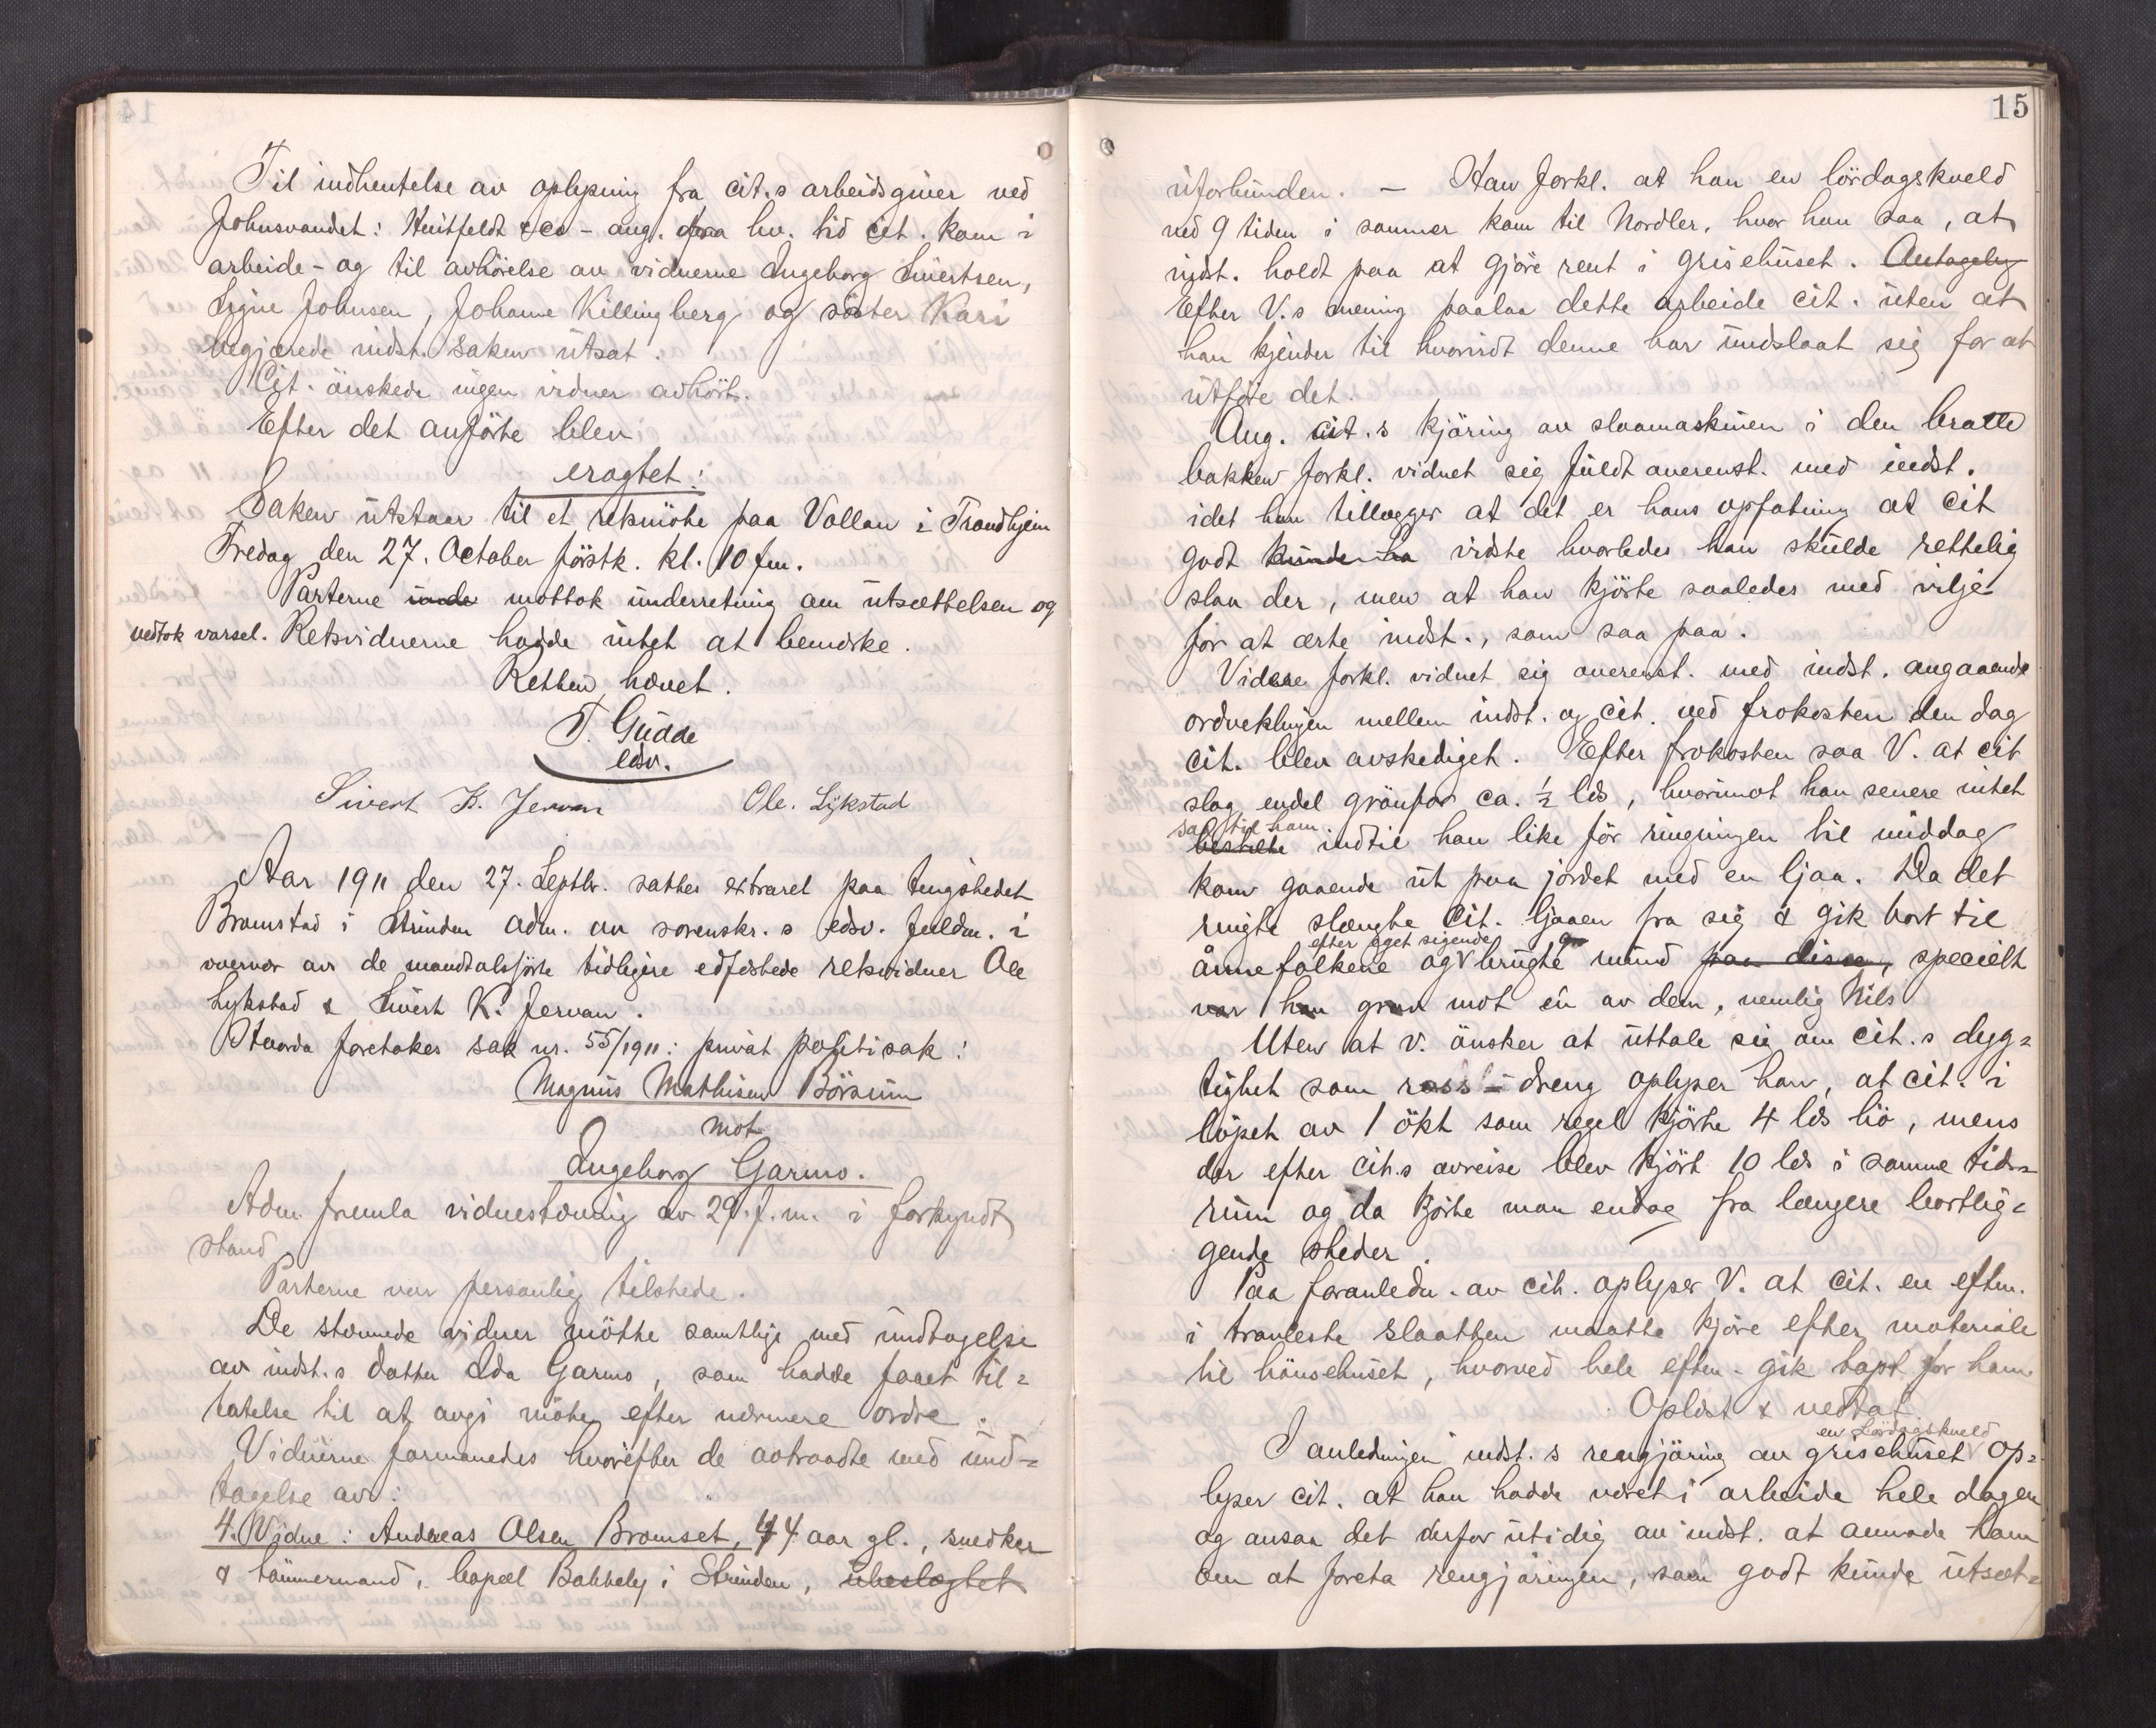 Til indhentelse av oplysning fra cit.s arbeidsgiver ved
Johnsvandet: Huitfeldt & co - ang. fra hv. tid cit. kom i
arbeide - og til avhörelse av vidnerne Ingeborg Sivertsen,
Signe Johnsen, Johanne Killingberg og söster Kari
begjærede indst. saken utsat.
Cit. önskede ingen vidner avhört.
Efter det anförte blev
eragtet:
Saken utstaar til et retsmöte paa Vollan i Trondhjem
Fredag den 27. October förstk. kl. 10 fm.
Parterne mottok underretning om utsættelsen og
vedtok varsel. Retsvidnerne hadde intet at bemerke.
Retten hævet.
T. Gudde
edsv.
Sivert K. Jervan Ole. Lykstad
Aar 1911 den 27. Septbr. sattes extraret paa tingstedet
Bromstad i Strinden adm. av sorenskr.s edsv. fuldm. i
overvær av de mandtalsförte tidligere edfæstede retsvidner Ole
Lykstad & Sivert K. Jervan.
Hvorda foretokes sak nr. 55/1911: privat politisak:
Magnus Mathisen Börsum
mot
Ingeborg Garmo.
Adm. fremla vidnestævning av 29. f.m. i forkyndt
stand
Parterne var personlig tilstede.
De stævnede vidner mötte samtlige med undtagelse
av indst.s datter Ida Garmo, som hadde faaet til=
latelse til at avgi möte efter nærmere ordre.
Vidnerne formanedes hvorefter de aotraadte med und=
tagelse av:
4. Vidne: Andreas Olsen Bromset, 44 aar gl., snedker
& tömmermand, bopæl Bakkely i Strinden, ubeslegtet
15
uforbunden. - Han forkl. at han en lördagskveld
ved 9 tiden i sommer kom til Nordler, hvor han saa, at
indst. holdt paa at gjöre rent i grisehuset. Antagelig
Efter V.s mening paalaa dette arbeide cit. uten at
han kjender til hvorvidt denne har undslaat sig for at
utföre det.
Ang. cit.s kjöring av slaamaskinen i den bratte
bakken forkl. vidnet sig fuldt overenst. med indst.
idet han tillægger at det er hans opfatning at cit
godt kunde ha vidste hvorledes han skulde rettelig
slaa der, men at han kjörte saaledes med vilje
for at ærte indst., som saa paa.
Videre forkl. vidnet sig overenst. med indst. angaaende
ordvekslingen mellem indst. og cit. ved frokosten den dag
cit. blev avskediget. Efter frokosten saa V. at cit
slog endel grönfor ca. ½ læs, hvorimot han senere intet
saa til ham
bestilte indtil han like för ringningen til middag
kom gaaende ut paa jordet med en ljaa. Da det
ringte slængte cit. ljaaen fra sig & gik bort til
efter eget sigende
ånnefolkene og brugte mund paa disse, specielt
var han grov mot en av dem, nemlig Nils
Uten at v. önsker at uttale sig om cit.s dyg=
tighet som dreng oplyser han, at cit. i
löpet av 1 ökt som regel kjörte 4 læs hö, mens
der efter cit.s avreise blev kjört 10 læs i samme tids=
rum og da kjörte man endog fra længere bortlig=
gende steder.
Paa foranledn. av cit. oplyser V. at cit. en efterm.
i travleste slaatten maatte kjöre efter materiale
til hönsehuset, hvorved hele efterm. gik tapt for ham
Oplæst & vedtat
en Lördagskveld
I anledningen indst.s rengjöring av grisehuset op=
lyser cit. at han hadde været i arbeide hele dagen
og ansaa det derfor utidig av indst. at anmode ham
om at foreta rengjöringen, som godt kunde utsæt=